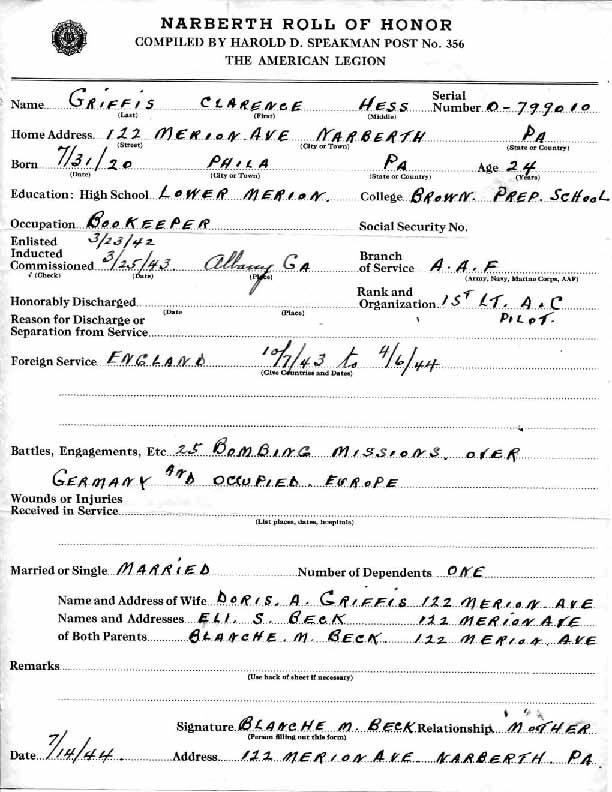 NARBERTH ROLL OF HONOR
COMPILED BY HAROLD D. SPEAKMAN POST No. 356
THE AMERICAN LEGION
Name GRIFFIS CLARENCE HESS Serial Number O-799010
(Last) (First) (Middle)
Home Address 122 MERION AVE NARBERTH PA
(Street) (City or Town) (State or Country)
Born 7/31/20 PHILA PA Age 24
(Date) (City or Town) (State or Country) (Years)
Education: High School LOWER MERION. College BROWN. PREP. SCHOOL
Occupation BOOKEEPER Social Security No.
Enlisted 3/23/42
Inducted
Commissioned 3/25/43. Albany GA Branch of Service A.A.F
√ (Check) (Date) (Place) (Army, Navy, Marine Corps, AAF)
Honorably Discharged Rank and Organization 1ST LT. A.C
(Date (Place) PILOT.
Reason for Discharge or
Separation from Service
Foreign Service ENGLAND 10/7/43 to 4/6/44
(Give Countries and Dates)
Battles, Engagements, Etc 25 BOMBING MISSIONS. OVER
GERMANY AND OCCUPIED. EUROPE
Wounds or Injuries
Received in Service
(List places, dates, hospitals)
Married or Single MARRIED Number of Dependents ONE
Name and Address of Wife DORIS. A. GRIFFIS 122 MERION AVE
Names and Addresses ELI. S. BECK 122 MERION AVE
of Both Parents BLANCHE. M. BECK 122 MERION AVE
Remarks
(Use back of sheet if necessary)
Signature BLANCHE M. BECK Relationship MOTHER
(Person filling out this form)
Date 7/14/44. Address 122 MERION AVE NARBERTH. PA.